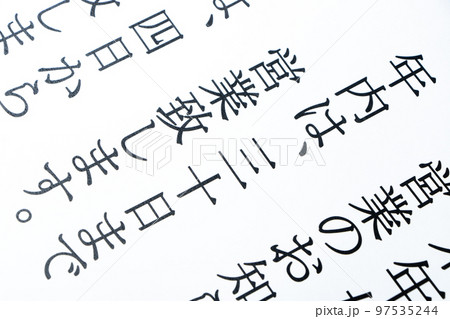 年
営業のお知
年内は、三十日まで
営業致します。
は、四日から
しま
PIXTA
pixta.jp - 97535244